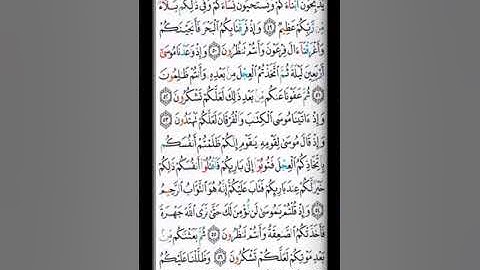 يُذَبِّحُونَ أَبْنَآءَكُمْ وَيَسْتَحْيُونَ نِسَآءَكُمْ وَفِى ذَٰلِكُم بَلَآءٌ
مِّن رَّبِّكُمْ عَظِيمٌ ٤٩ وَإِذْ فَرَقْنَا بِكُمُ ٱلْبَحْرَ فَأَنجَيْنَٰكُمْ
وَأَغْرَقْنَآ ءَالَ فِرْعَوْنَ وَأَنتُمْ تَنظُرُونَ ٥٠ وَإِذْ وَٰعَدْنَا مُوسَىٰٓ
أَرْبَعِينَ لَيْلَةً ثُمَّ ٱتَّخَذْتُمُ ٱلْعِجْلَ مِنۢ بَعْدِهِۦ وَأَنتُمْ ظَٰلِمُونَ
٥١ ثُمَّ عَفَوْنَا عَنكُم مِّنۢ بَعْدِ ذَٰلِكَ لَعَلَّكُمْ تَشْكُرُونَ ٥٢
وَإِذْ ءَاتَيْنَا مُوسَى ٱلْكِتَٰبَ وَٱلْفُرْقَانَ لَعَلَّكُمْ تَهْتَدُونَ ٥٣
وَإِذْ قَالَ مُوسَىٰ لِقَوْمِهِۦ يَٰقَوْمِ إِنَّكُمْ ظَلَمْتُمْ أَنفُسَكُم
بِٱتِّخَاذِكُمُ ٱلْعِجْلَ فَتُوبُوٓا۟ إِلَىٰ بَارِئِكُمْ فَٱقْتُلُوٓا۟ أَنفُسَكُمْ ذَٰلِكُمْ
خَيْرٌ لَّكُمْ عِندَ بَارِئِكُمْ فَتَابَ عَلَيْكُمْ إِنَّهُۥ هُوَ ٱلتَّوَّابُ ٱلرَّحِيمُ
٥٤ وَإِذْ قُلْتُمْ يَٰمُوسَىٰ لَن نُّؤْمِنَ لَكَ حَتَّىٰ نَرَى ٱللَّهَ جَهْرَةً
فَأَخَذَتْكُمُ ٱلصَّٰعِقَةُ وَأَنتُمْ تَنظُرُونَ ٥٥ ثُمَّ بَعَثْنَٰكُم مِّنۢ
بَعْدِ مَوْتِكُمْ لَعَلَّكُمْ تَشْكُرُونَ ٥٦ وَظَلَّلْنَا عَلَيْكُمُ